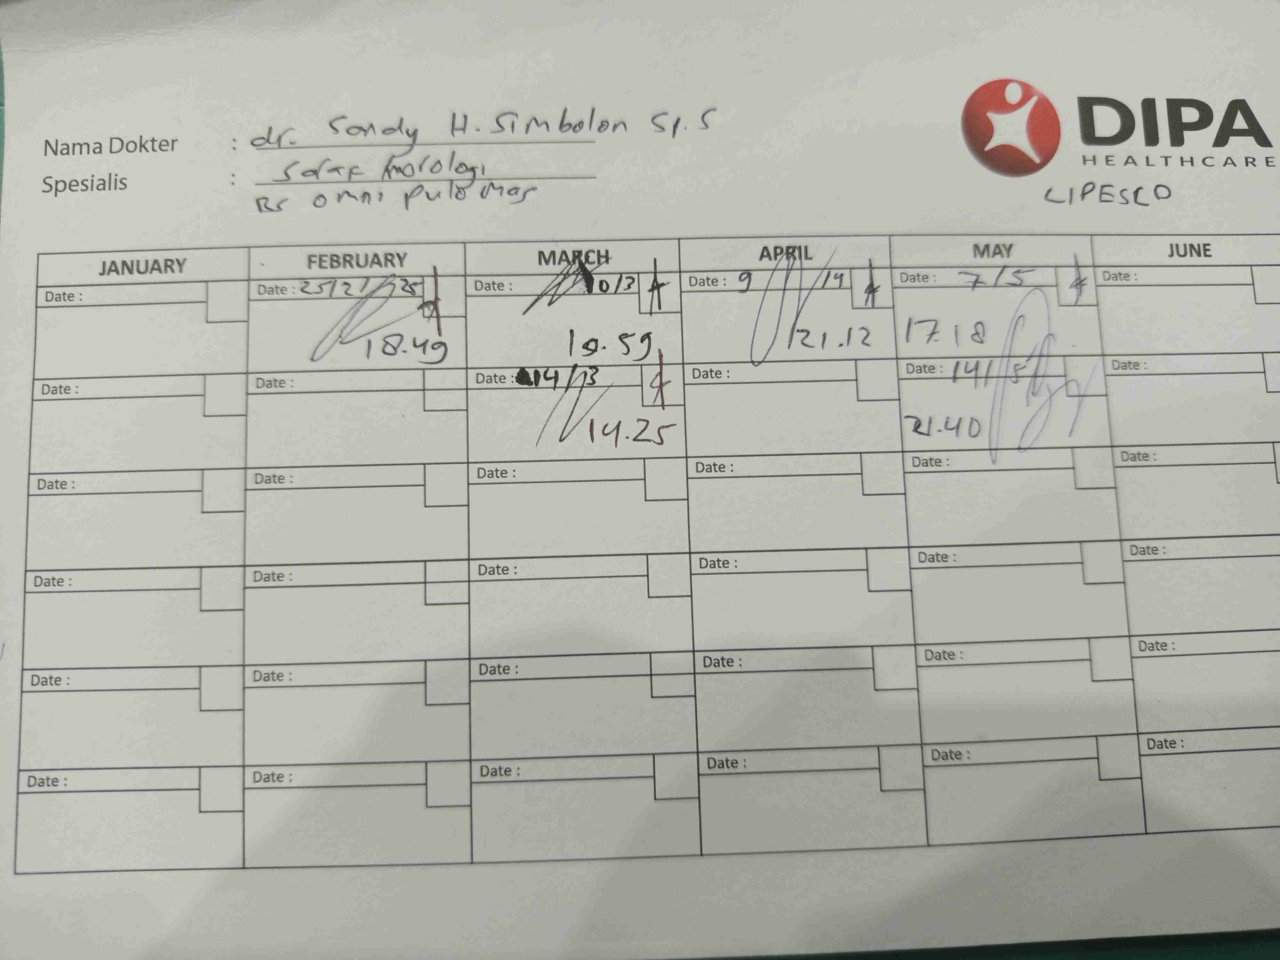 DIPA
HEALTHCARE
LIPESCO
Nama Dokter : dr. Sandy H. Simbolon Sp. S
Spesialis : Saraf
Rs omni pulomas
JANUARY FEBRUARY MARCH APRIL MAY JUNE
Date : Date : 25/2/25 Date : 10/3 Date : 9 Date : 7/5 Date :
18.49 19.59 21.12 17.18
Date : Date : Date : 14/3 Date : Date : 14/5 Date :
14.25 21.40
Date : Date : Date : Date : Date : Date :
Date : Date : Date : Date : Date : Date :
Date : Date : Date : Date : Date : Date :
Date : Date : Date : Date : Date : Date :